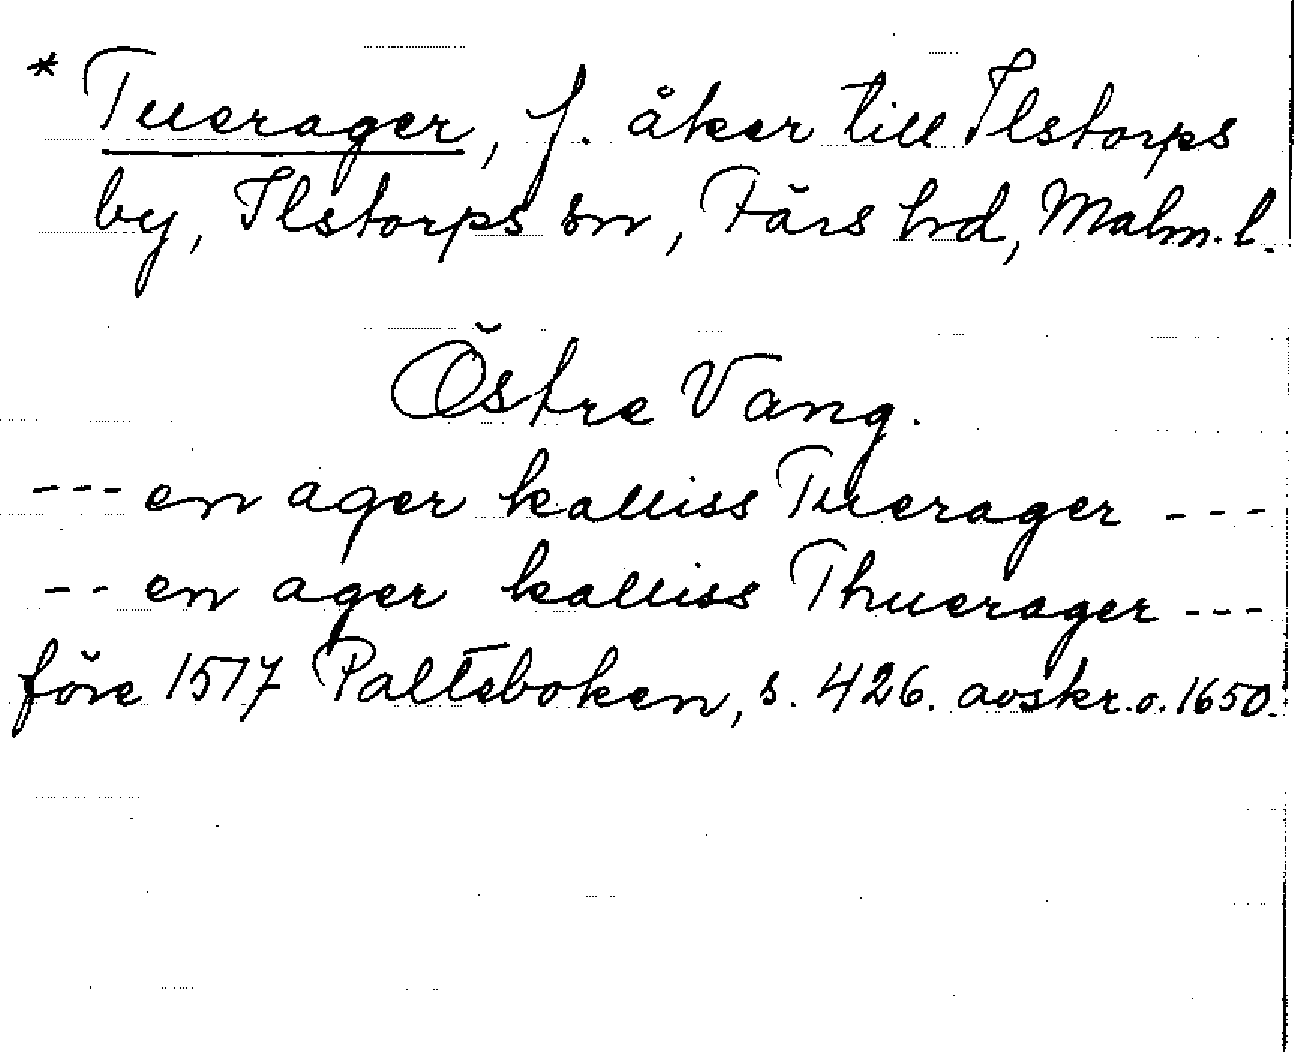 * Tuerager, f. åker till Ilstorps
by, Ilstorps sn, Färs hrd, Malm. l.
Östre Vang.
--- en ager kalliss Tuerager ---
-- en ager kalliss Thuerager ---
före 1517 Palteboken, s. 426. avskr. o. 1650.